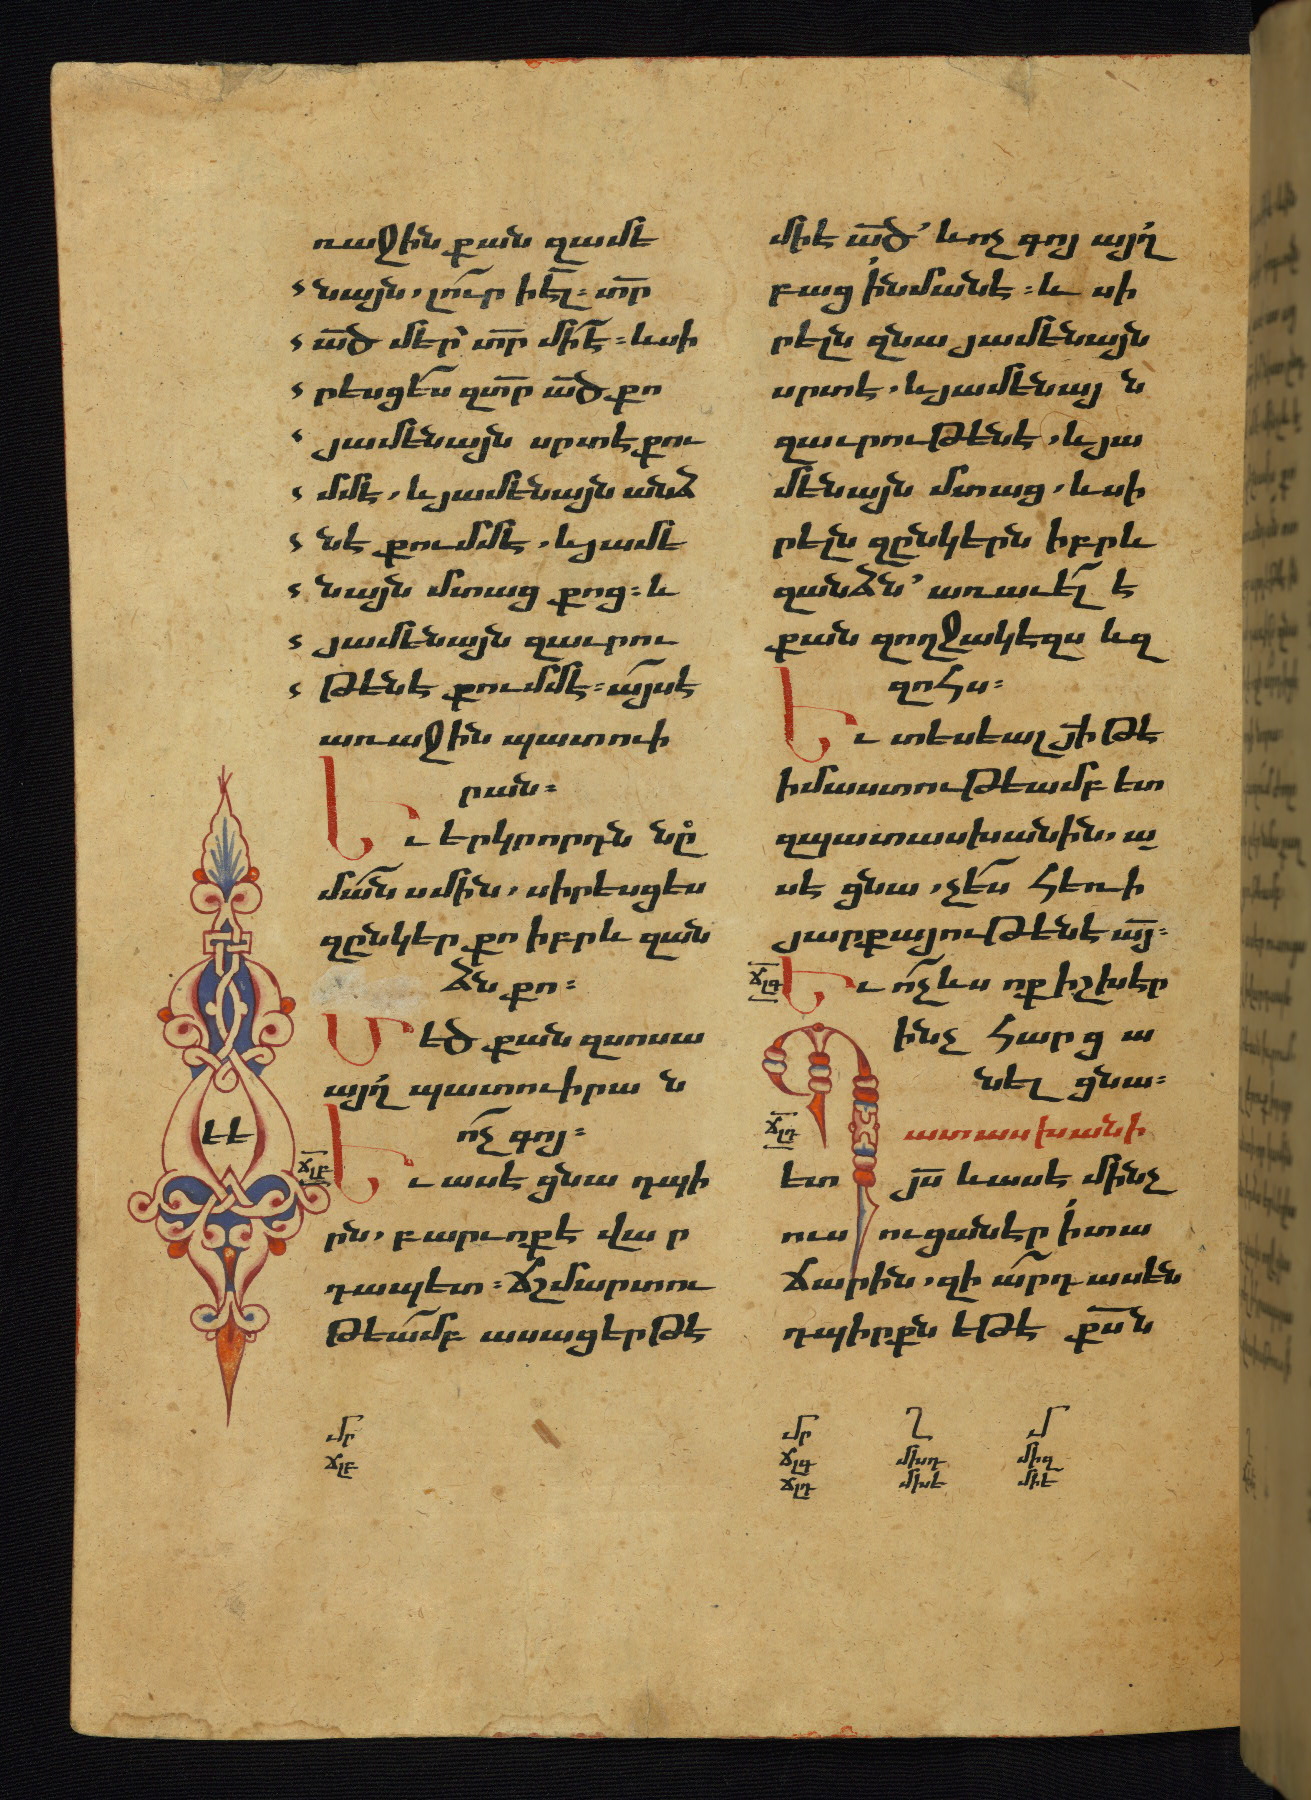 ռաջին քան զամե
նայն, լո՛ւր ի̅է̅լ։ տ̅ր
ա̅ծ մեր՝ տ̅ր մի է։ և սի
րեսցես զտ̅ր ա̅ծ քո
յամենայն սրտէ քու
մմէ, և յամենայն անձ
նէ քումմէ, և յամե
նայն մտաց քոց։ և
յամենայն զաւրու
թենէ քումմէ։ այս է
առաջին պատուի
րան։
Եւ երկրորդն նը
ման սմին, սիրեսցես
զընկեր քո իբրև զան
ձն քո։
Մեծ քան զսոսա
այղ պատուիրան
ոչ գոյ։
ճլբ
Եւ ասէ ցնա դպի
րն, բարւոք է վար
դապետ։ ճշմարտու
թեամբ ասացեր թէ
մի է ա̅ծ՝ և ոչ գոյ այղ
բաց ի նմանէ։ և սի
րելն զնա յամենայն
սրտէ, և յամենայն
զաւրութենէ, և յա
մենայն մտաց, և սի
րելն զընկերն իբրև
զանձն՝ առաւել է
քան զողջակէզս և զ
զոհս։
Եւ տեսեալ յ̅ի թէ
իմաստութեամբ ետ
զպատասխանին, ա
սէ ցնա, չես հեռի
յարքայութենէ ա̅յ։
ճլգ
Եւ ոչ ևս ոք իշխէր
ինչ հարց ա
նել ցնա։
ճլդ
Պատասխանի
ետ յ̅ս և ասէ մինչ
ուս ուցաներ ի տա
ճարին, զի արդ ասեն
դպիրքն եթէ ք̅ս ն
մր
ճլբ
մր ղ մ
ճլգ մխդ
ճլդ մխե